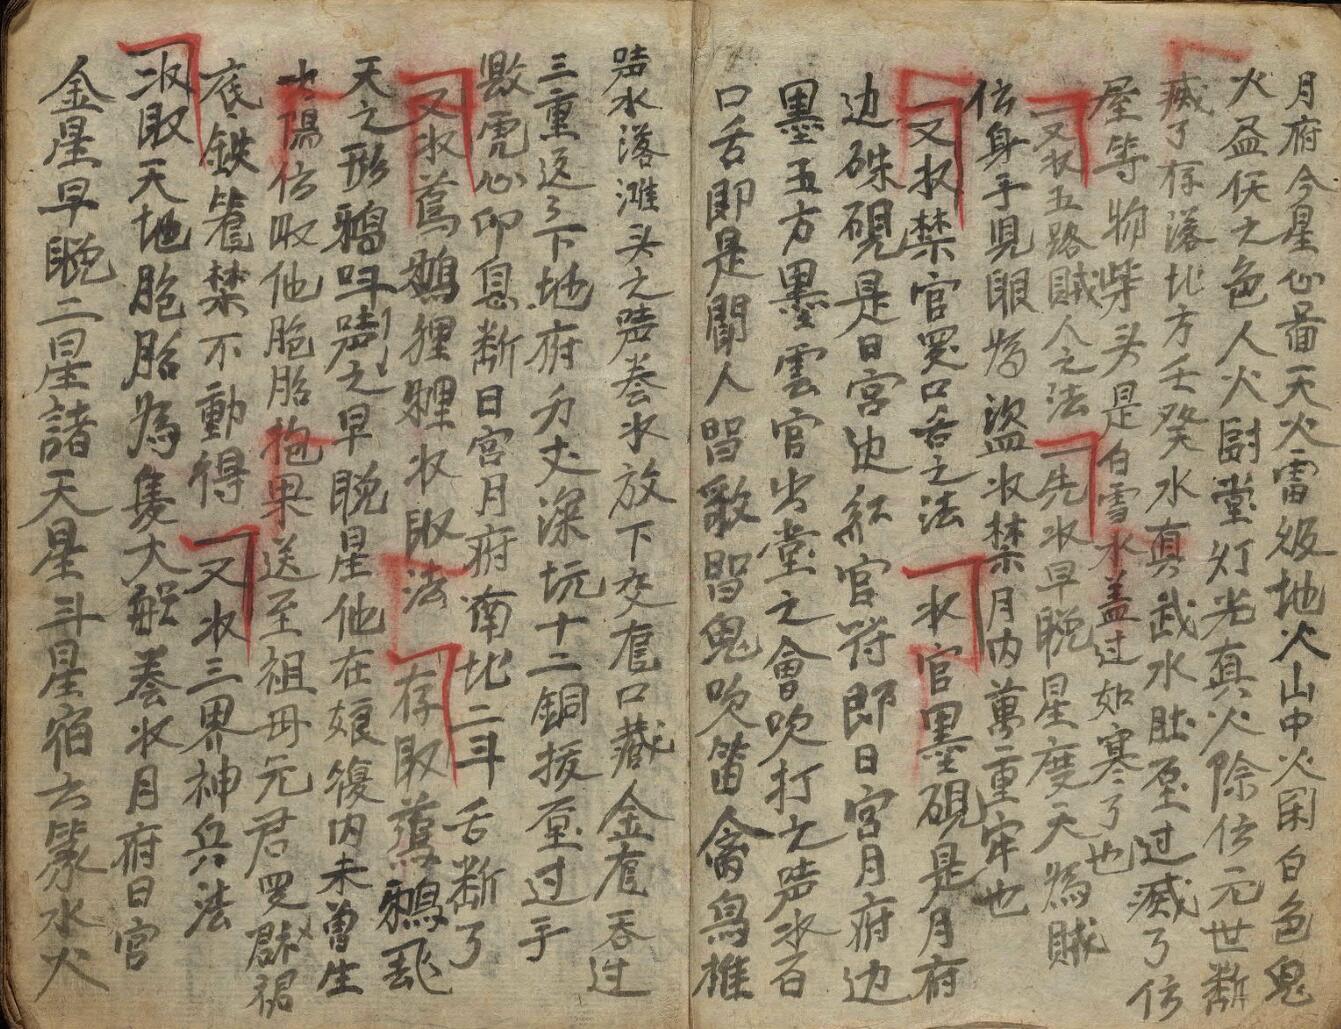 月府今星心畄天火雷级地火山中火闲白色鬼
火益伝之色人火厨堂灯光真火除伝元世断
瘷了存落北方壬癸水真武水肚壓过瘷了伝
屋等物柴头是白雪水盖过如寒了也
又收五路贼人之法 先收早晚星度天為贼
伝身手見眼為盗收禁月内萬重牢也
又收禁官冤口舌之法 收官墨硯是月府
边硃硯是日宫边紅官符即日宫月府边
墨五方墨雲官出堂之會吹打之唠收百
口舌即是鬧人唱歌唱鬼吹笛禽鳥推
唠水落滩头之唠養收放下交雀口藏金雀吞过
三重返了下地府万丈深坑十二銅拔壓过手
獣虎心卯息断日宮月府南北二斗舌断了
又收蔦鵝狸狸收取法 存取蔦鴉飛
天之形鴉叫唠之早晚星他在娘復内未曽生
太陽伝收他胞胎袍果送至祖毋元君罗裙裙
底鉄笼禁不動得 又收三界神兵法
收取天地胞胎為隻大船養收月府日宫
金星早晚二星諸天星斗星宿六篆水火